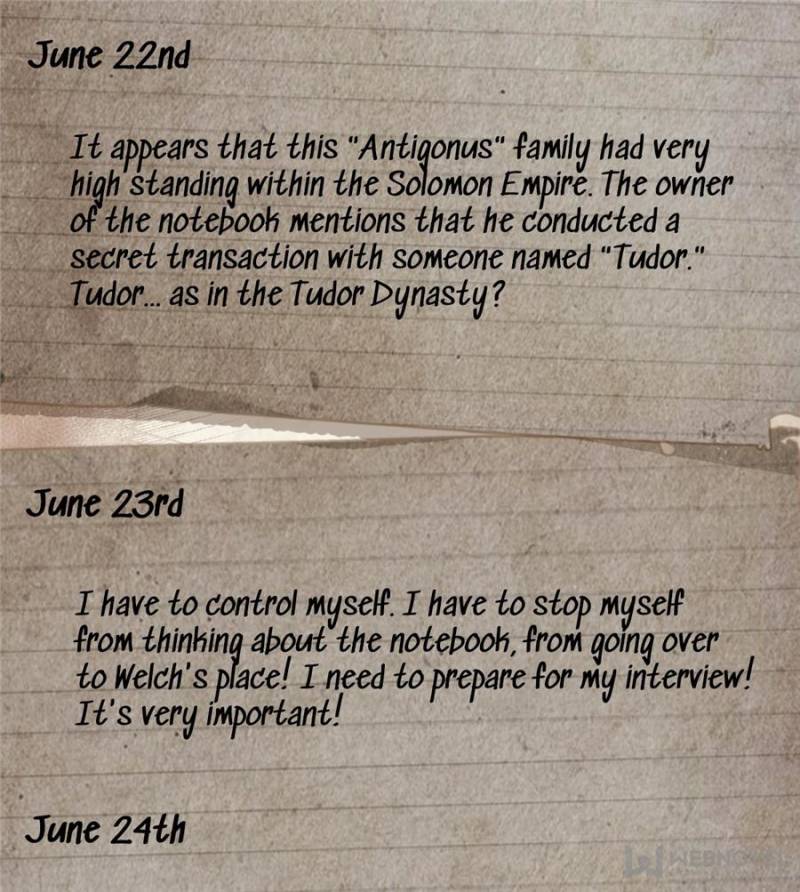 June 22nd
It appears that this "Antigonus" family had very
high standing within the Solomon Empire. The owner
of the notebook mentions that he conducted a
secret transaction with someone named "Tudor."
Tudor... as in the Tudor Dynasty?
June 23rd
I have to control myself. I have to stop myself
from thinking about the notebook, from going over
to Welch's place! I need to prepare for my interview!
It's very important!
June 24th
WEBNOVEL